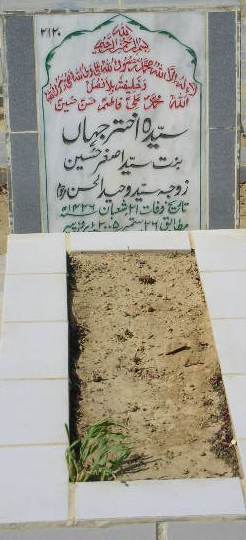 ۲۱۲۰
بسم اللہ الرحمن الرحیم
لا الہ الا اللہ محمد رسول اللہ علی ولی اللہ
وخلیفتہ بلا فصل
اللہ محمد علی فاطمہ حسن حسین
سیدہ اختر جہاں
بنت سید اصغر حسین
زوجہ سید وحید الحسن
تاریخ وفات ۲۱ شعبان ۱۴۲۶ھ
مطابق ۲۶ ستمبر ۲۰۰۵ء بروز پیر